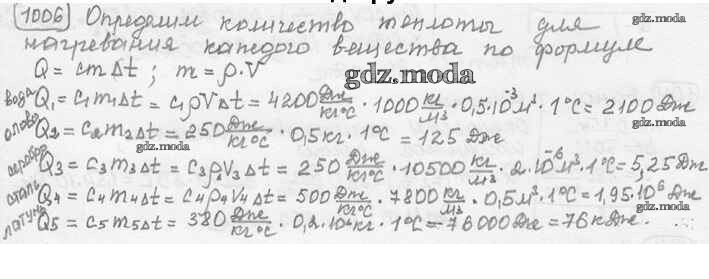 1006 Определим количество теплоты для
нагревания каждого вещества по формуле
Q = cmΔt ; m = ρ·V
gdz.moda
gdz.moda
вода Q₁ = c₁m₁Δt = c₁ρVΔt = 4200 Дж/кг°C · 1000 кг/м³ · 0,5·10⁻³ м³ · 1°C = 2100 Дж
олово Q₂ = c₂m₂Δt = 250 Дж/кг°C · 0,5кг · 1°C = 125 Дж
gdz.moda
gdz.moda
серебро Q₃ = c₃m₃Δt = c₃ρV₃Δt = 250 Дж/кг°C · 10500 кг/м³ · 2·10⁻⁶ м³ · 1°C = 5,25 Дж
сталь Q₄ = c₄m₄Δt = c₄ρ₄V₄Δt = 500 Дж/кг°C · 7800 кг/м³ · 0,5м³ · 1°C = 1,95·10⁶ Дж
латунь Q₅ = c₅m₅Δt = 380 Дж/кг°C · 0,2· кг · 1°C = 76000 Дж = 76 кДж.
gdz.moda